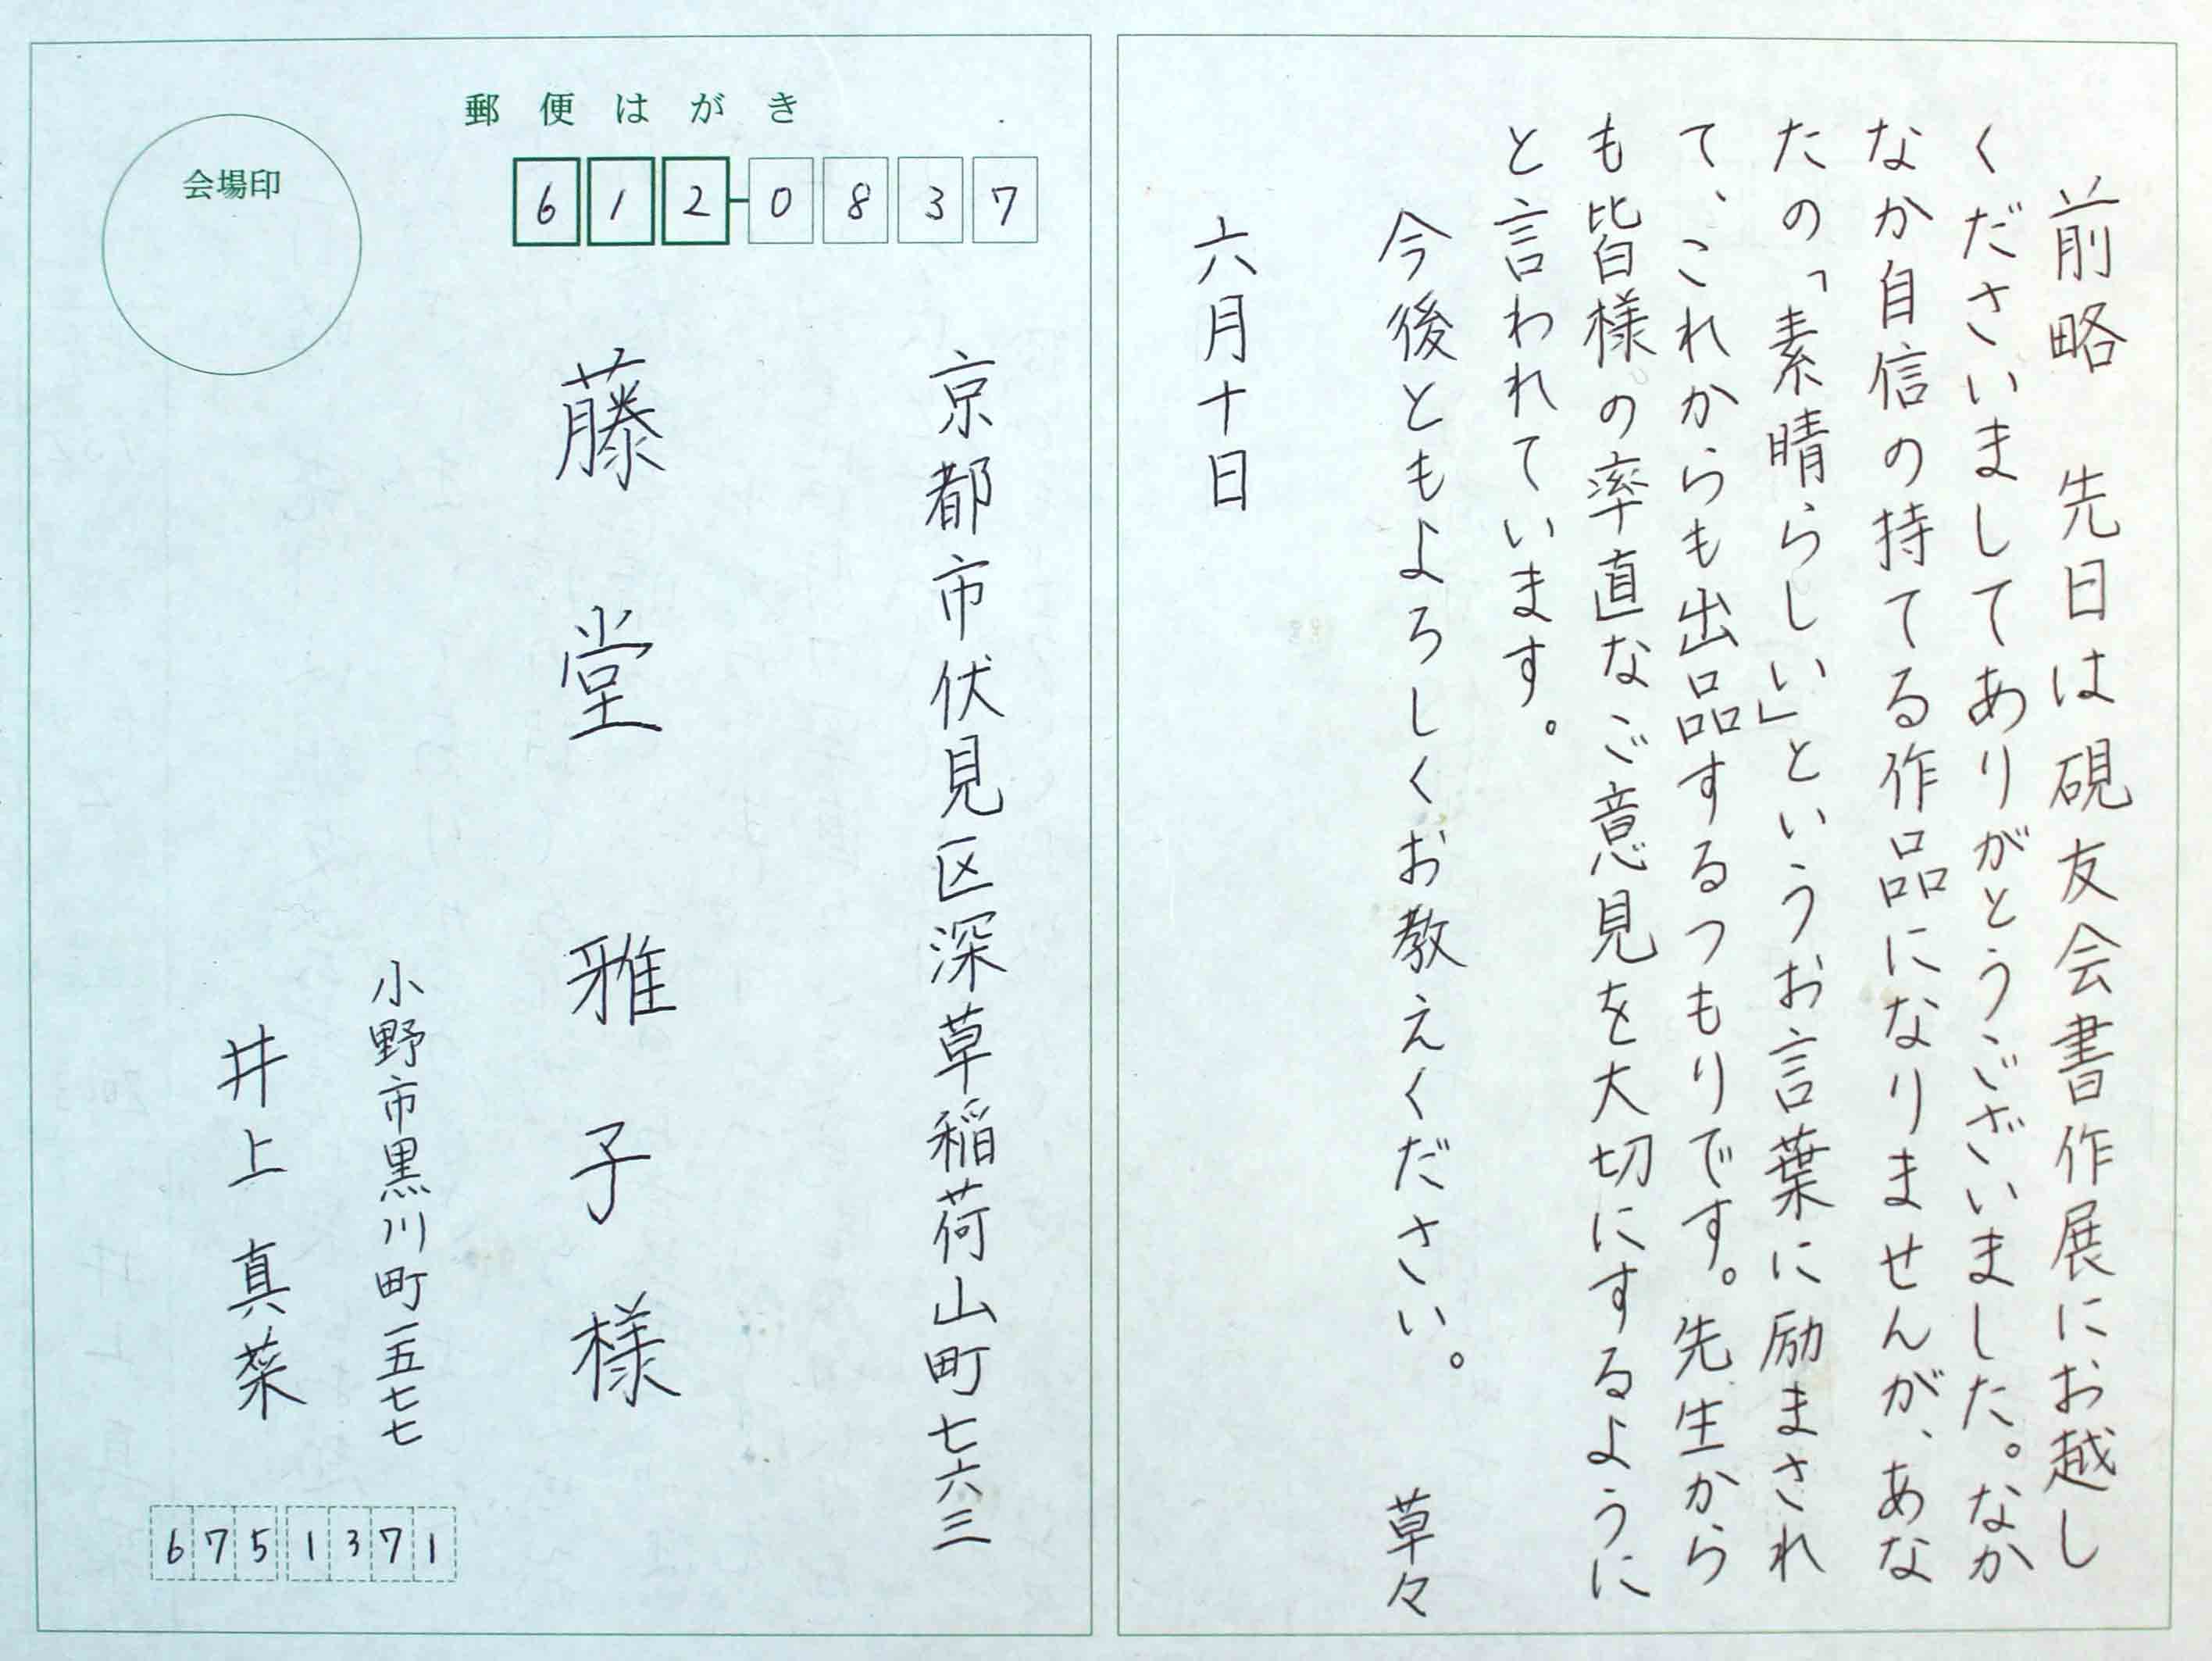 郵便はがき
会場印
612-0837
京都市伏見区深草稲荷山町七六三
藤堂雅子様
小野市黒川町一五七七
井上真菜
6751371
前略　先日は硯友会書作展にお越し
くださいましてありがとうございました。なか
なか自信の持てる作品になりませんが、あな
たの「素晴らしい」というお言葉に励まされ
て、これからも出品するつもりです。先生から
も皆様の率直なご意見を大切にするように
と言われています。
今後ともよろしくお教えください。　草々
六月十日